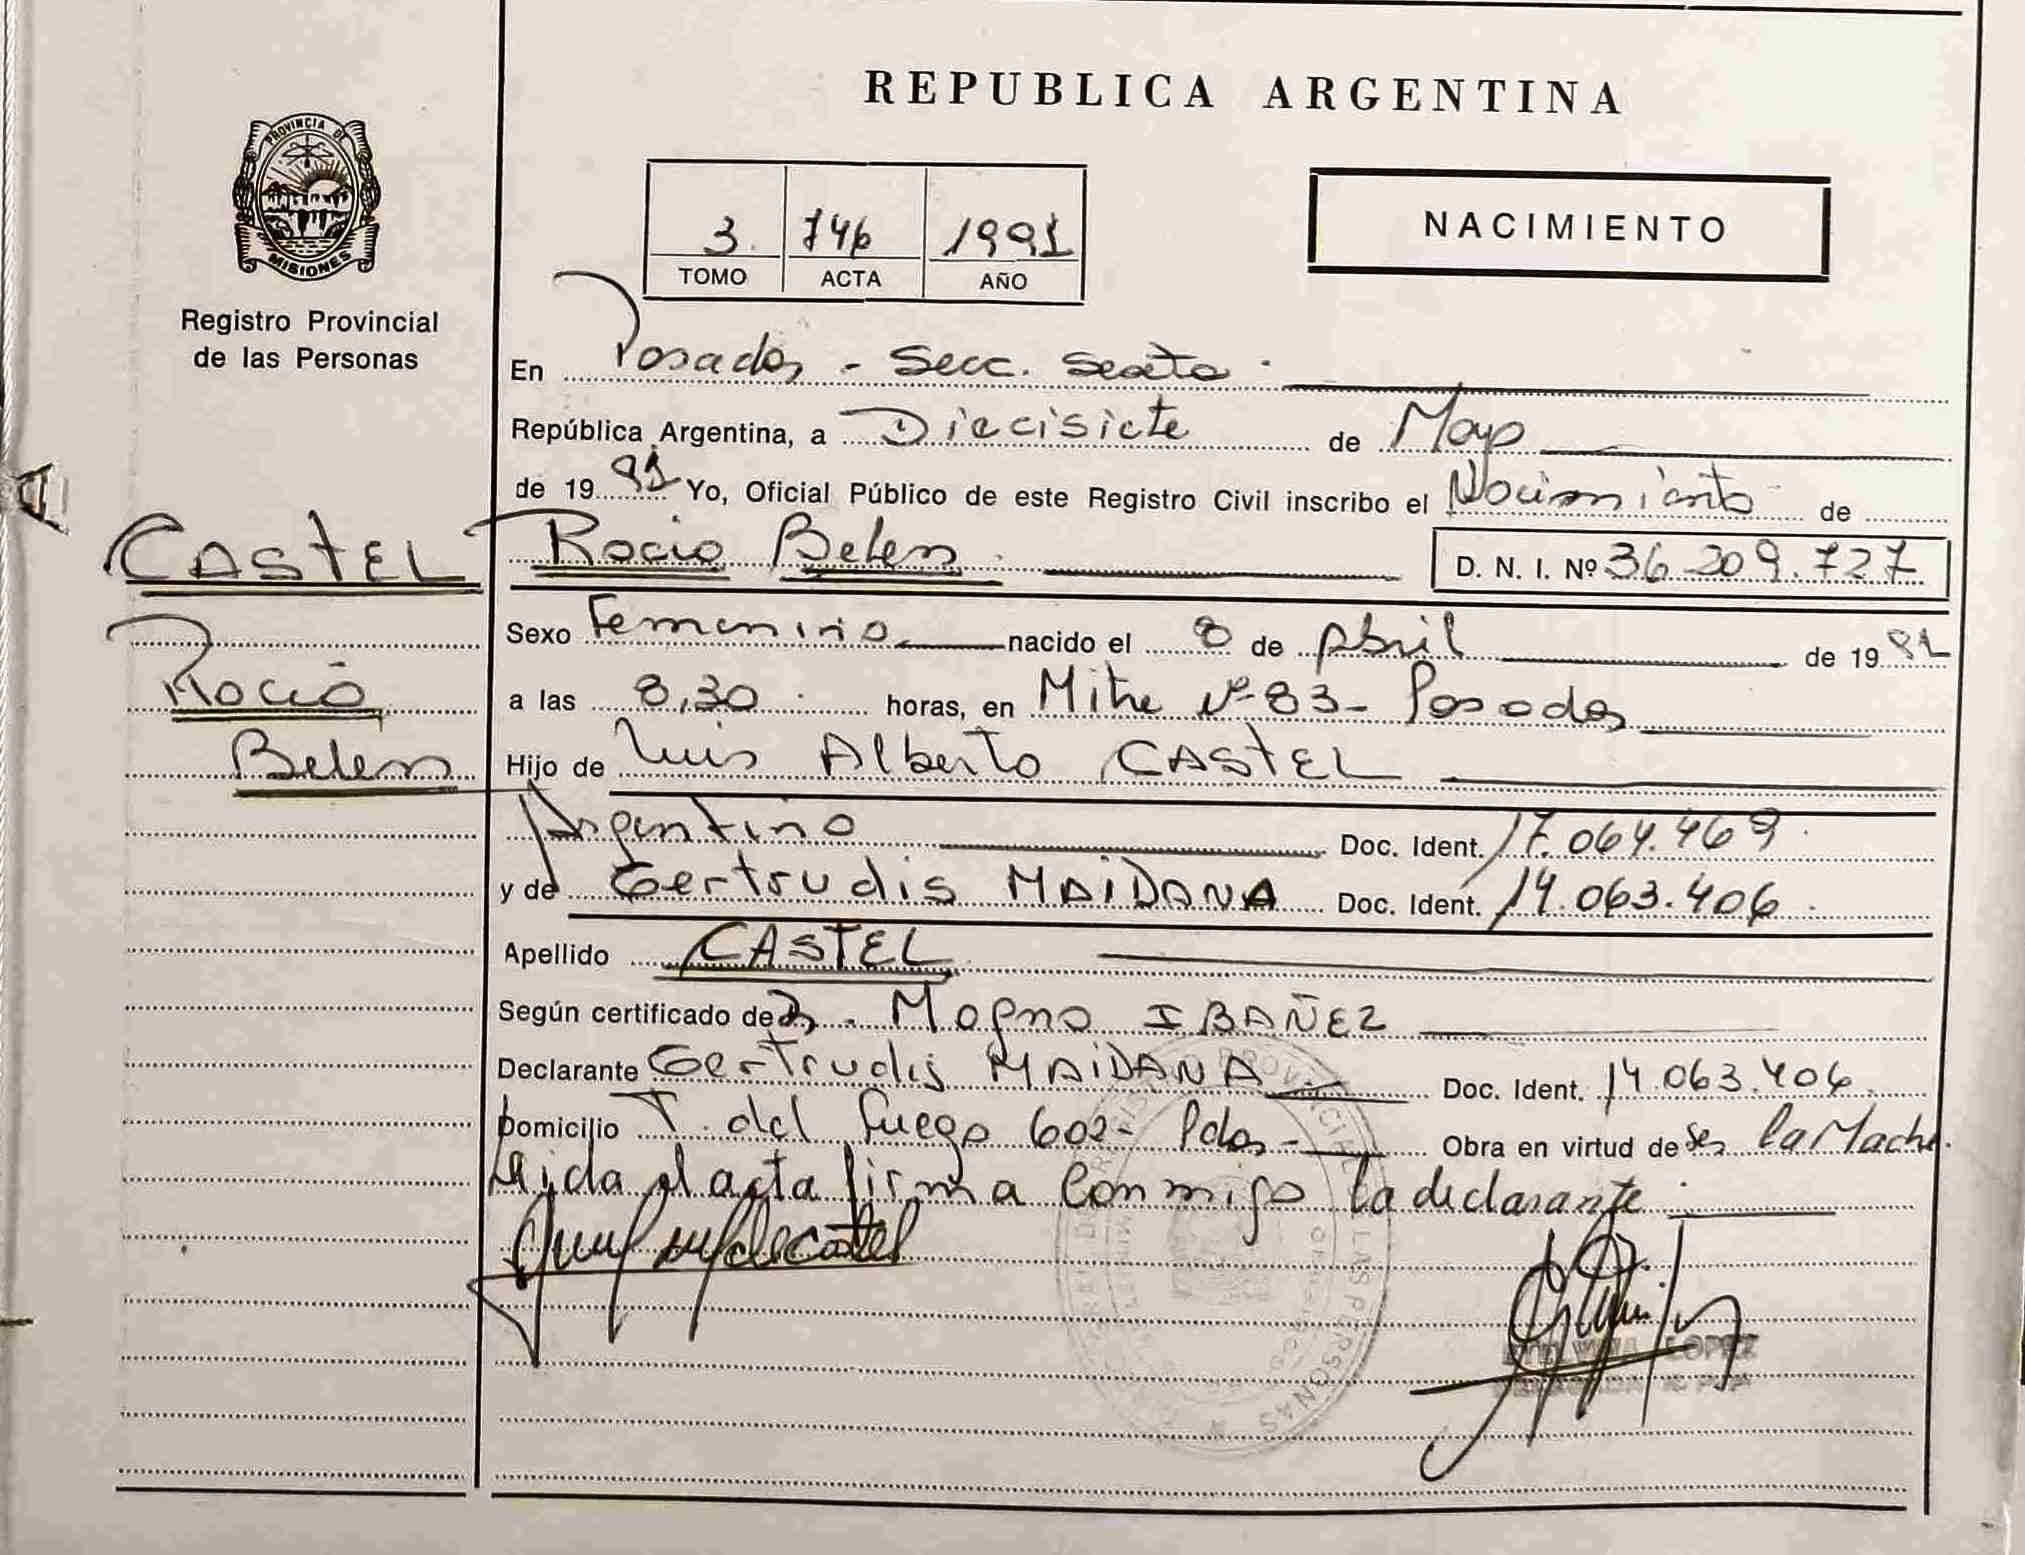 REPUBLICA ARGENTINA
PROVINCIA DE
MISIONES
Registro Provincial
de las Personas
3 746 1991
TOMO ACTA AÑO
NACIMIENTO
En Posadas - Secc. Sexta
República Argentina, a Diecisiete de Mayo
de 1991 Yo, Oficial Público de este Registro Civil inscribo el Nacimiento de
CASTEL
Rocio
Belen
Rocio Belen D. N. I. Nº 36.209.727
Sexo Femenino nacido el 8 de Abril de 1991
a las 8,30 horas, en Mitre Nº 83 - Posadas
Hijo de Luis Alberto CASTEL
Argentino Doc. Ident. 17.064.469
y de Gertrudis MAIDANA Doc. Ident. 14.063.406
Apellido CASTEL
Según certificado de Magno IBAÑEZ
Declarante Gertrudis MAIDANA Doc. Ident. 14.063.406
Domicilio T. del Fuego 602 - Pdas - Obra en virtud de ser la Madre.
Leida el acta firma conmigo la declarante
LOPEZ